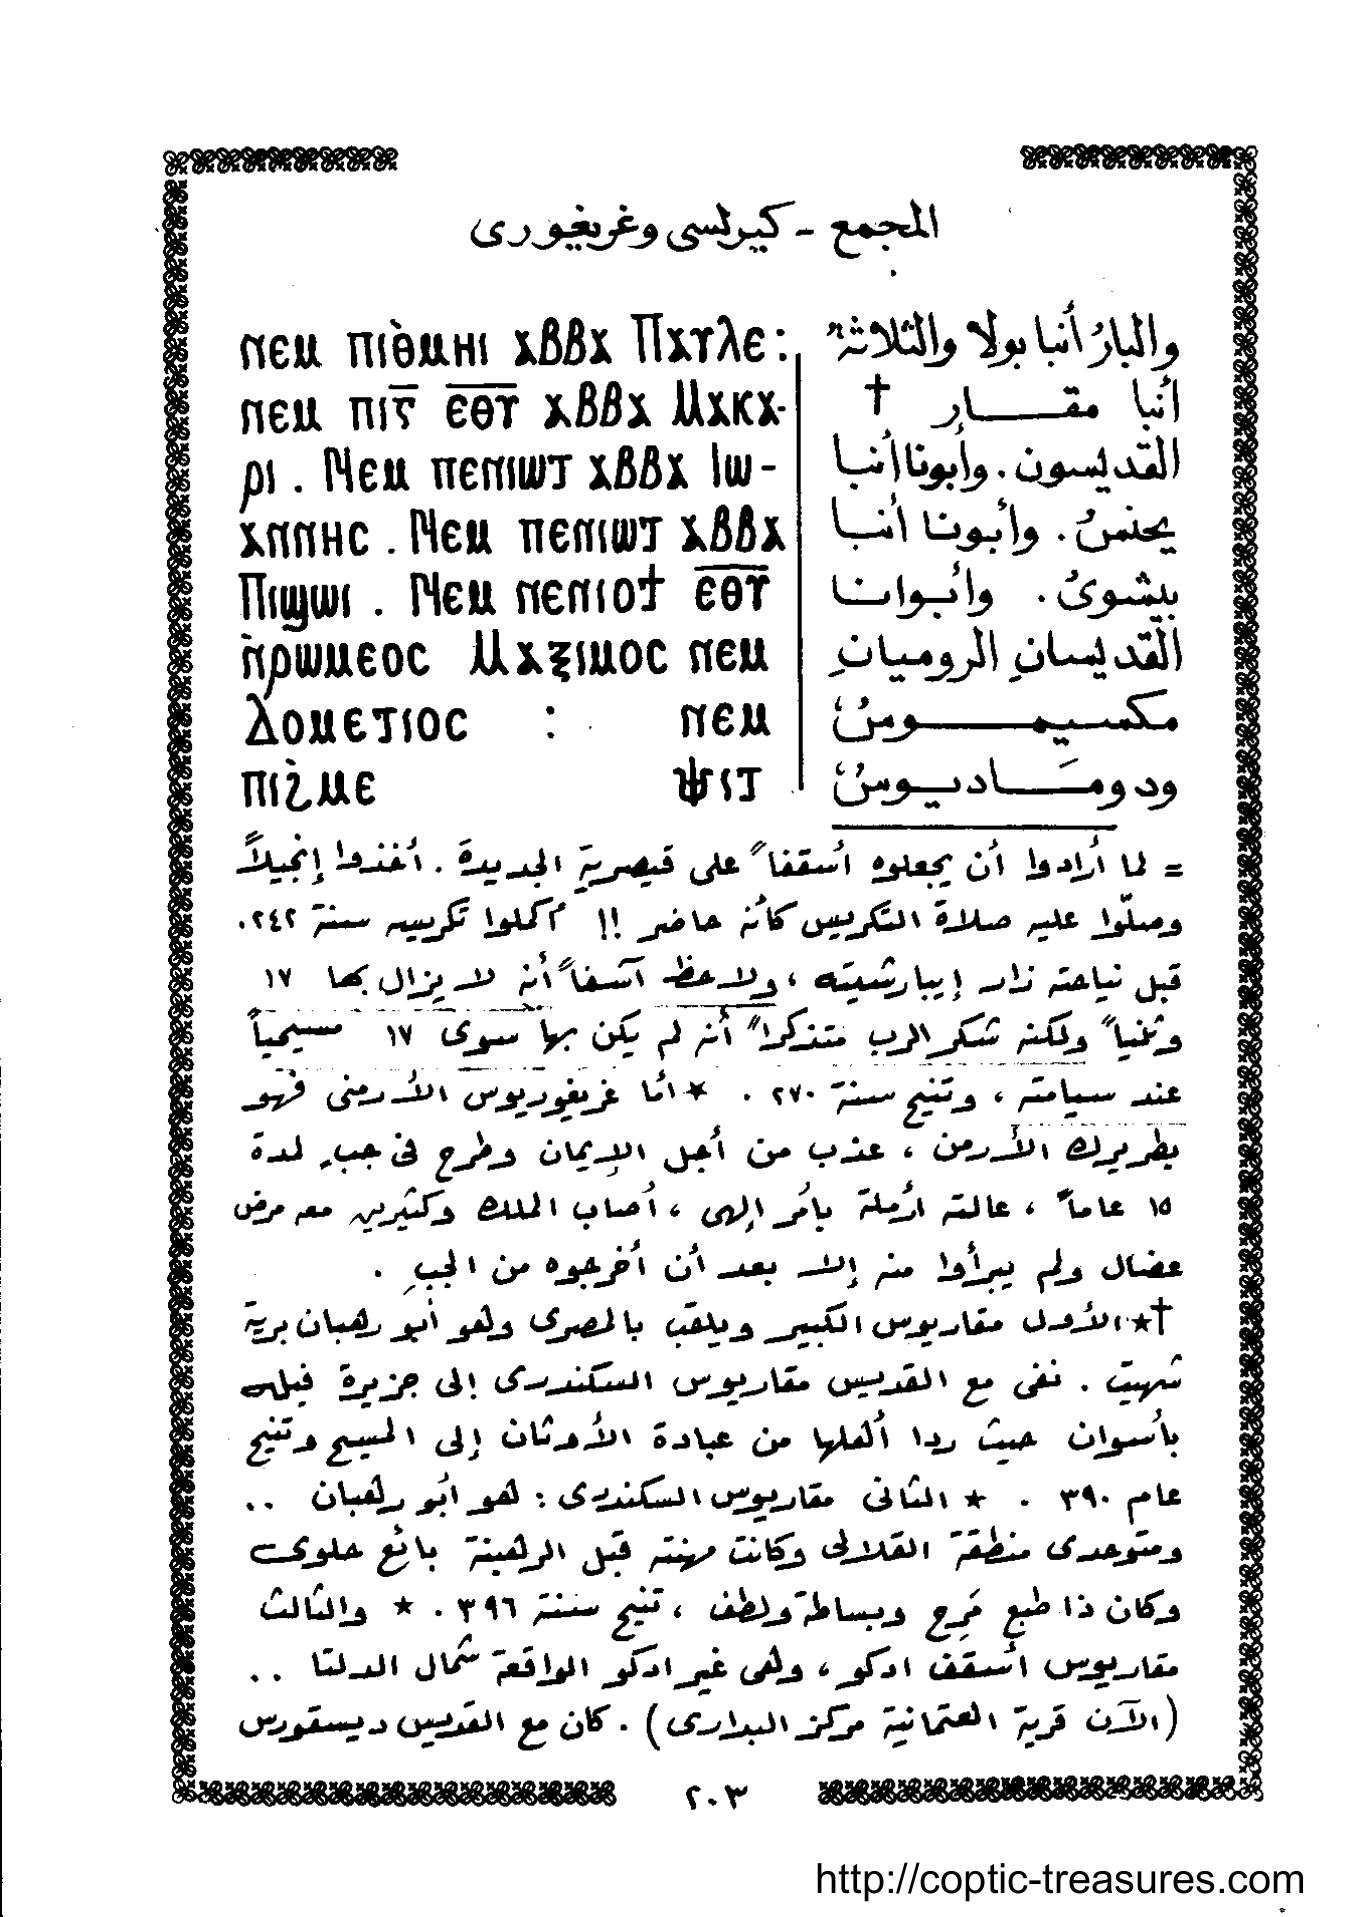 المجمع - كيرلسى وغريغورى
ⲛⲉⲙ ⲡⲓⲑ̀ⲙⲏⲓ ⲁⲃⲃⲁ Ⲡⲁⲩⲗⲉ:
ⲛⲉⲙ ⲡⲓⲅ̅ ⲉ̅ⲑ̅ⲩ̅ ⲁⲃⲃⲁ Ⲙⲁⲕⲁ-
ⲣⲓ . Ⲛⲉⲙ ⲡⲉⲛⲓⲱⲧ ⲁⲃⲃⲁ Ⲓⲱ-
ⲁⲛⲛⲏⲥ . Ⲛⲉⲙ ⲡⲉⲛⲓⲱⲧ ⲁⲃⲃⲁ
Ⲡⲓϣⲱⲓ . Ⲛⲉⲙ ⲛⲉⲛⲓⲟϯ ⲉ̅ⲑ̅ⲩ̅
ⲛ̀ⲣⲱⲙⲉⲟⲥ Ⲙⲁⲝⲓⲙⲟⲥ ⲛⲉⲙ
Ⲇⲟⲙⲉⲧⲓⲟⲥ : ⲛⲉⲙ
ⲡⲓϩ̀ⲙⲉ ⲯⲓⲧ
والبارُ أنبا بولا والثلاثة
أنبا مقـار †
القديسون . وأبونا أنبـا
يحنسُ . وأبونـا أنبـا
بيشوىُ . وأبـواتـا
القديسانِ الروميانِ
مكسيمـوسُ
ودومَـاديـوسُ
= لما أرادوا أن يجعلوه أسقفاً على قيصرية الجديدة . أخذوا إنجيلاً
وصلّوا عليه صلاة التكريس كأنه حاضر !! ثم كملوا تكريسه سنة ٢٤٢.
قبل نياحته زار إيبارشيته ، ولاحظ آسفاً أنه لا يزال بها ١٧
وثنياً ولكنه شكر الرب متذكراً أنه لم يكن بها سوى ١٧ مسيحياً
عند سيامته ، وتنيح سنة ٢٧٠ . * أما غريغوريوس الأرمنى فهو
بطريرك الأرمن ، عذب من أجل الإيمان وطرح فى جبٍ لمدة
١٥ عاماً ، عالته أرملة بأمر إلهى ، أصاب الملك وكثيرين معه مرض
عضال ولم يبرأوا منه إلا بعد أن أخرجوه من الجبِ .
†* الأول مقاريوس الكبير ويلقب بالمصرى وهو أبو رهبان برية
شهيت . نفى مع القديس مقاريوس السكندرى إلى جزيرة فيله
بأسوان حيث ردا أهلها من عبادة الأوثان إلى المسيح وتنيح
عام ٣٩٠ . * الثانى مقاريوس السكندرى : هو أبو رهبان ..
ومتوحدى منطقة القلالى وكانت مهنته قبل الرهبنة بائع حلوى
وكان ذا طبع مَرِح وبساطة ولطف ، تنيح سنة ٣٩٦ . * والثالث
مقاريوس أسقف ادكو ، وهى غير ادكو الواقعة شمال الدلتا ..
(الآن قرية العتمانية مركز البدارى) . كان مع القديس ديسقورس
٢٠٣
http://coptic-treasures.com